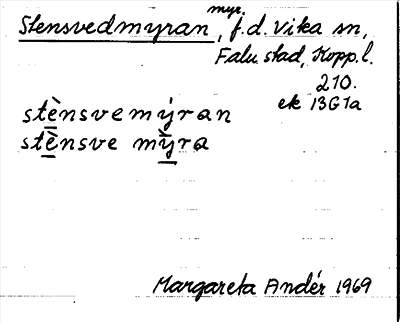 Stensvedmyran, myr. f.d. Vika sn,
Falu stad, Kopp.l.
210.
ek 13G1a
stènsvemýran
stènsve mỳra
Margareta Andér 1969